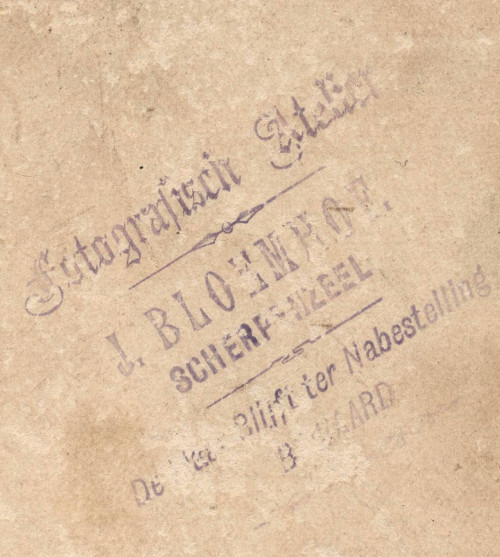 Fotografisch Atelier
J. BLOEMHOF.
SCHERPENZEEL
De Blijft ter Nabestelling